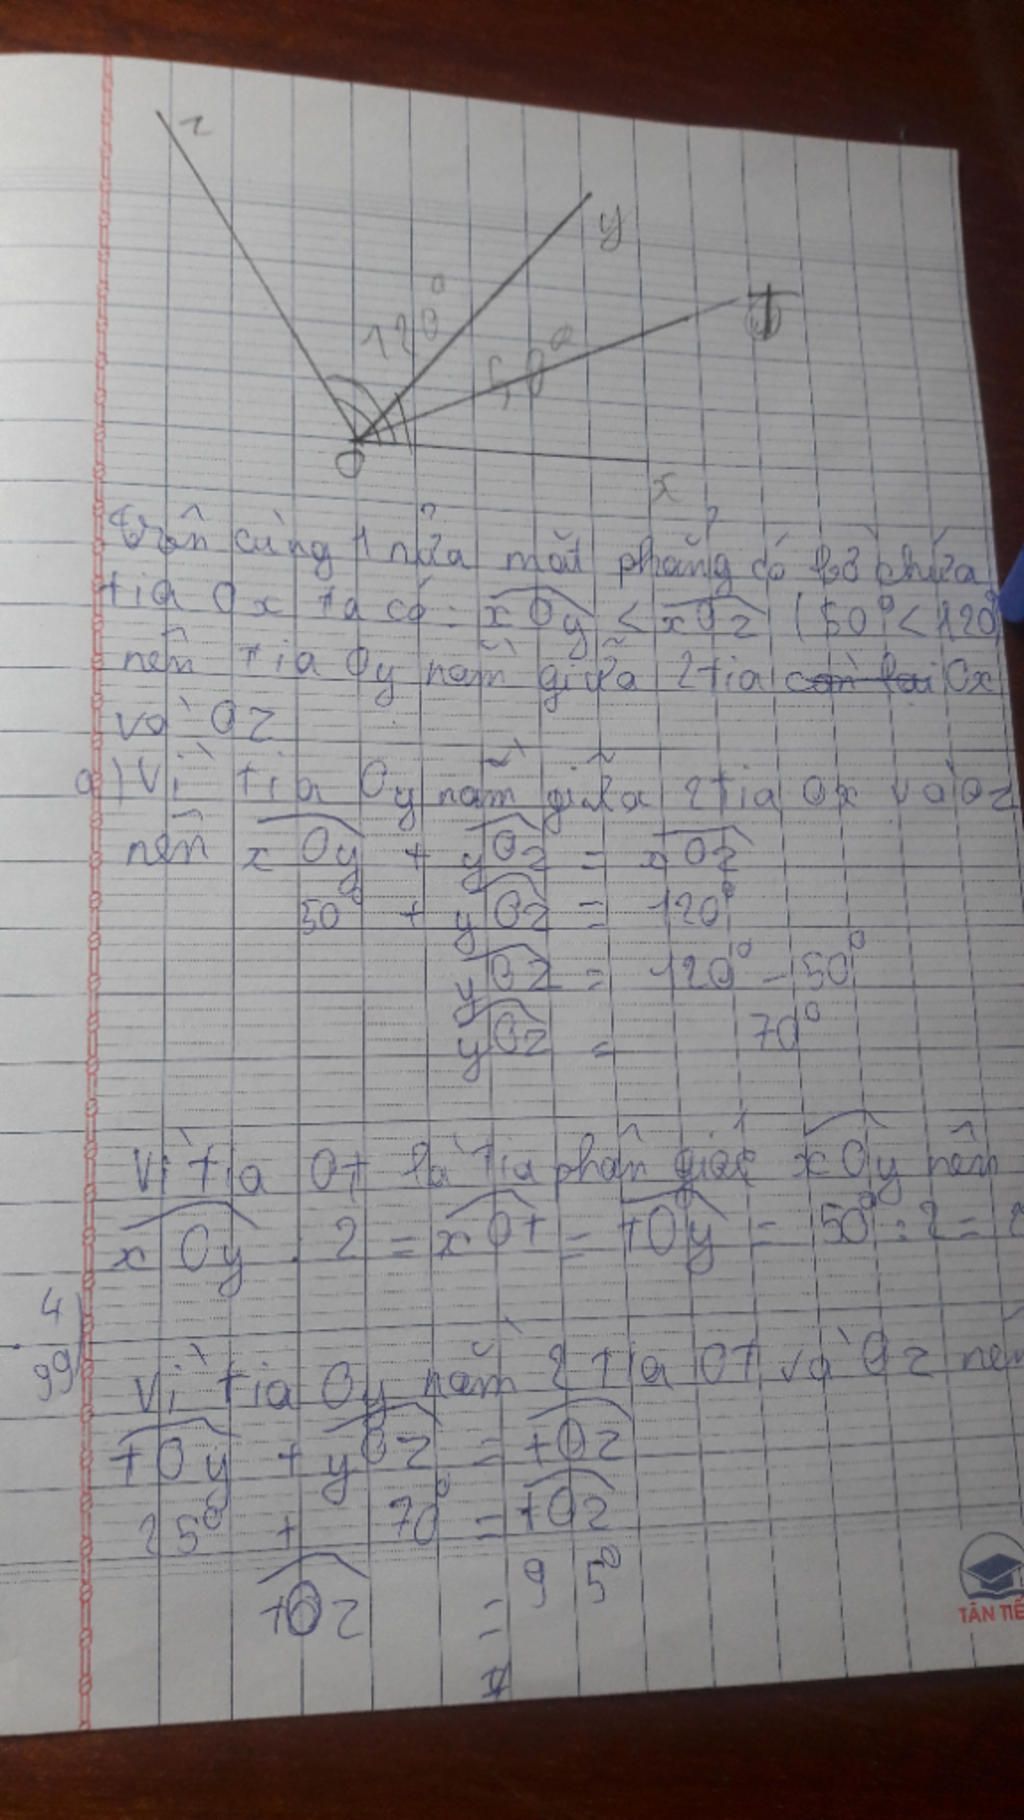 z
y
120°
t
50°
O
x
trên cùng 1 nửa mặt phẳng có bờ chứa
tia Ox ta có: xOy < xOz (50° < 120°
nên tia Oy nằm giữa 2 tia còn lại Ox
và Oz
a) Vì tia Oy nằm giữa 2 tia Ox và Oz
nên xOy + yOz = xOz
50 + yOz = 120°
yOz = 120° - 50°
yOz = 70°
Vì tia Ot là tia phân giác xOy nên
xOy . 2 = xOt = tOy = 50° : 2 = 2
4
99)
Vì tia Oy nằm 2 tia Ot và Oz nên
tOy + yOz = tOz
25° + 70° = tOz
tOz = 95°
TÂN TIẾ